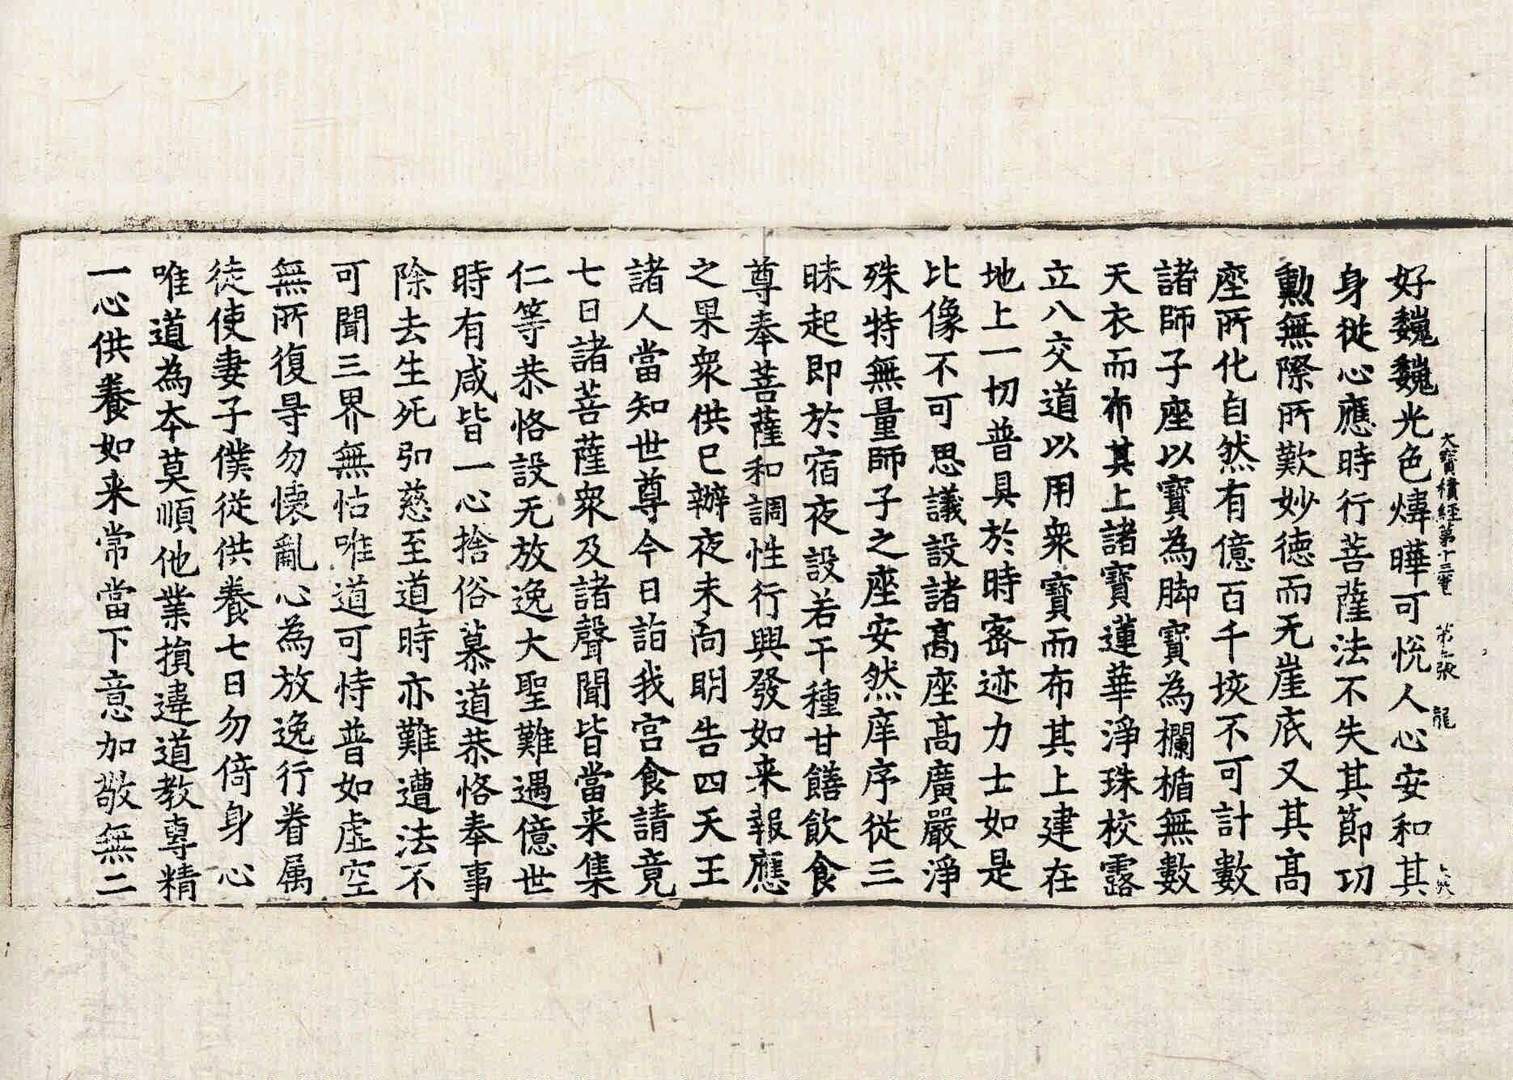 大寶積經第十三卷 第六張 龍
好巍巍光色㷸曄可悅人心安和其
身從心應時行菩薩法不失其節功
勳無際所歎妙德而无崖底又其髙
座所化自然有億百千垓不可計數
諸師子座以寶為脚寶為欄楯無數
天衣而布其上諸寶蓮華淨珠校露
立八交道以用衆寶而布其上建在
地上一切普具於時密迹力士如是
比像不可思議設諸髙座髙廣嚴淨
殊特無量師子之座安然庠序從三
昧起即於宿夜設若干種甘饍飲食
尊奉菩薩和調性行興發如来報應
之果衆供已辦夜未向明告四天王
諸人當知世尊今日詣我宮食請竟
七日諸菩薩衆及諸聲聞皆當来集
仁等恭恪設无放逸大聖難遇億世
時有咸皆一心捨俗慕道恭恪奉事
除去生死弘慈至道時亦難遭法不
可聞三界無怙唯道可恃普如虛空
無所復㝵勿懷亂心為放逸行眷属
徒使妻子僕從供養七日勿倚身心
唯道為本莫順他業損違道教專精
一心供養如来常當下意加敬無二